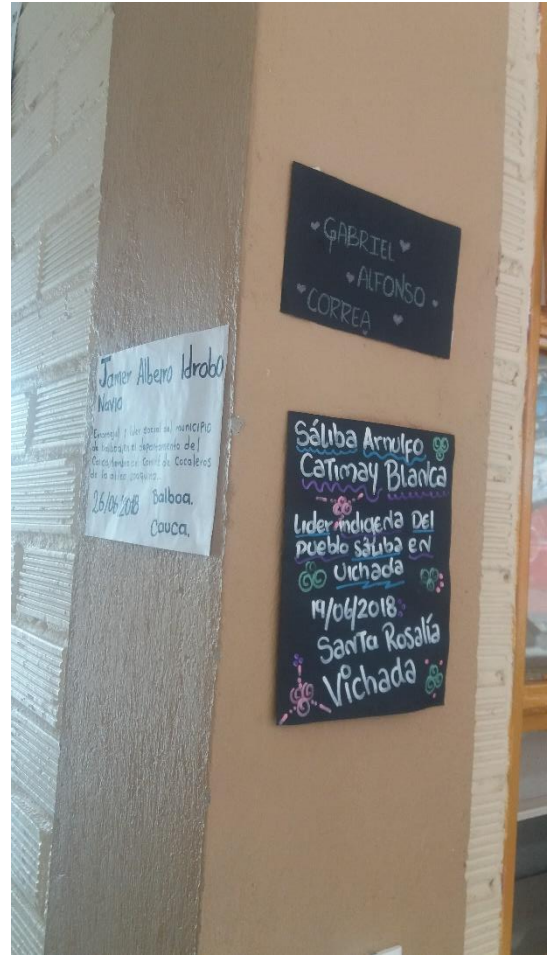 Jamer Albeiro Idrobo
Navia
y líder social del municipio
de balboa, en el departamento del
Cauca, miembro de Comité de Cocaleros
de la
26/06/2018 Balboa.
Cauca.
GABRIEL
ALFONSO
CORREA
Sáliba Arnulfo
Catimay Blanca
Lider indigena DEL
Pueblo sáliba EN
Vichada
19/06/2018
Santa Rosalía
Vichada